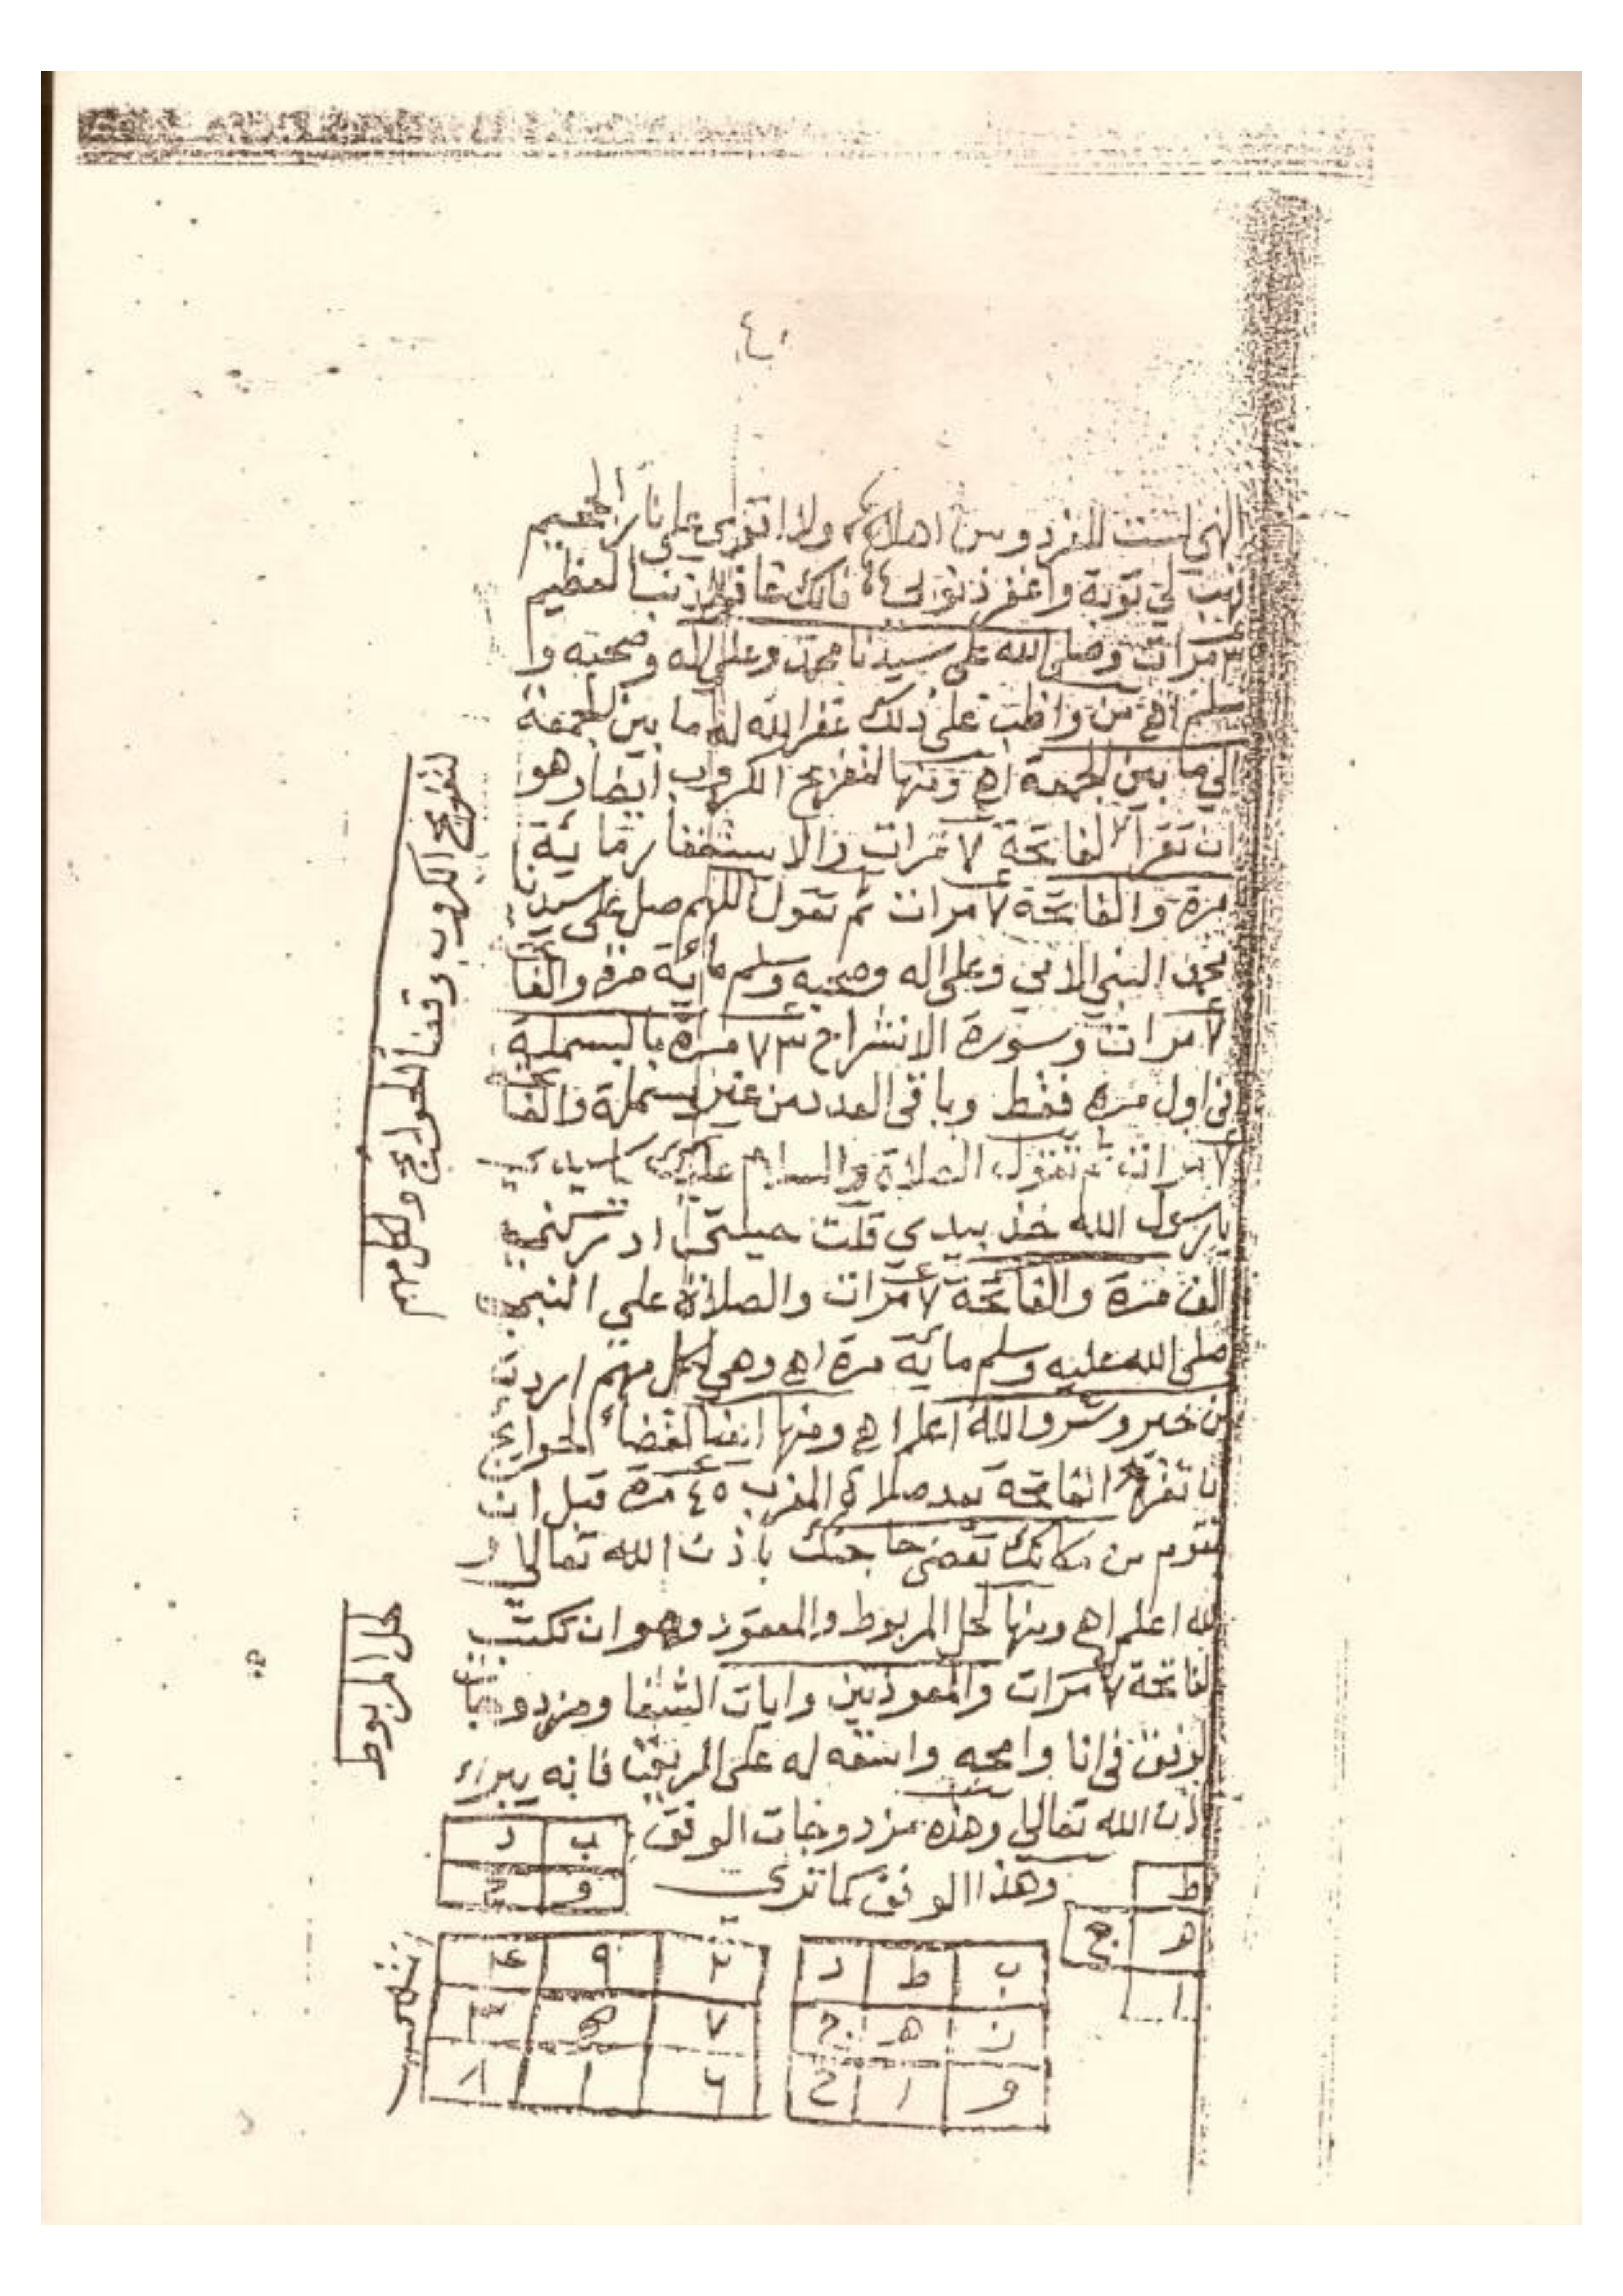 ٤٠
الهي لست للفردوس اهلا ولا اقوى على نار الجحيم
فهب لي توبة واغفر ذنوبي فانك غافر الذنب العظيم
٣ مرات وصلى الله على سيدنا محمد وعلى اله وصحبه و
سلم اهـ من واظب على ذلك غفر الله له ما بين الجمعة
الى ما بين الجمعة اهـ ومنها لتفريج الكروب ايضا وهو
ان تقرأ الفاتحة ٧ مرات والاستغفار مائية
مرة والفاتحة ٧ مرات ثم تقول اللهم صل على سيدنا
محمد النبي الامي وعلى اله وصحبه وسلم مائة مرة والفاتحة
٧ مرات وسورة الانشراح ٧٣ مرة بالبسملة
في اول مره فقط وباقى العدد من غير بسملة والفاتحة
٧ مرات ثم تقول الصلاة والسلام عليك يا سيدي
يا رسول الله خذ بيدي قلت حيلتي ادركني
الف مرة والفاتحة ٧ مرات والصلاة على النبي
صلى الله عليه وسلم مائة مرة اهـ وهي لكل مهم اردت
من خير وشر والله اعلم اهـ ومنها ايضا لقضاء الحوايج
تقرأ الفاتحة بعد صلاة المغرب ٤٥ مرة قبل ان
تقوم من مكانك تقضى حاجتك باذن الله تعالى و
لله اعلم اهـ ومنها لحل المربوط والمعقود وهو ان تكتب
لفاتحة ٧ مرات والمعوذتين وايات الشفا ومزدوجات
لوفق في انا وامحه واسقه له على الريق فانه يبراء
اذن الله تعالى وهذه مزدوجات الوفق
ب د
و ح
وهذا الوفق كما ترى
ط
هـ ج
ا
ب ط د
ز هـ ج
و ا ح
٢ ٩ ٤
٧ ٥ ٣
٦ ١ ٨
لتفريج الكروب وقضا الحوايج ولكل مهم
حل المربوط